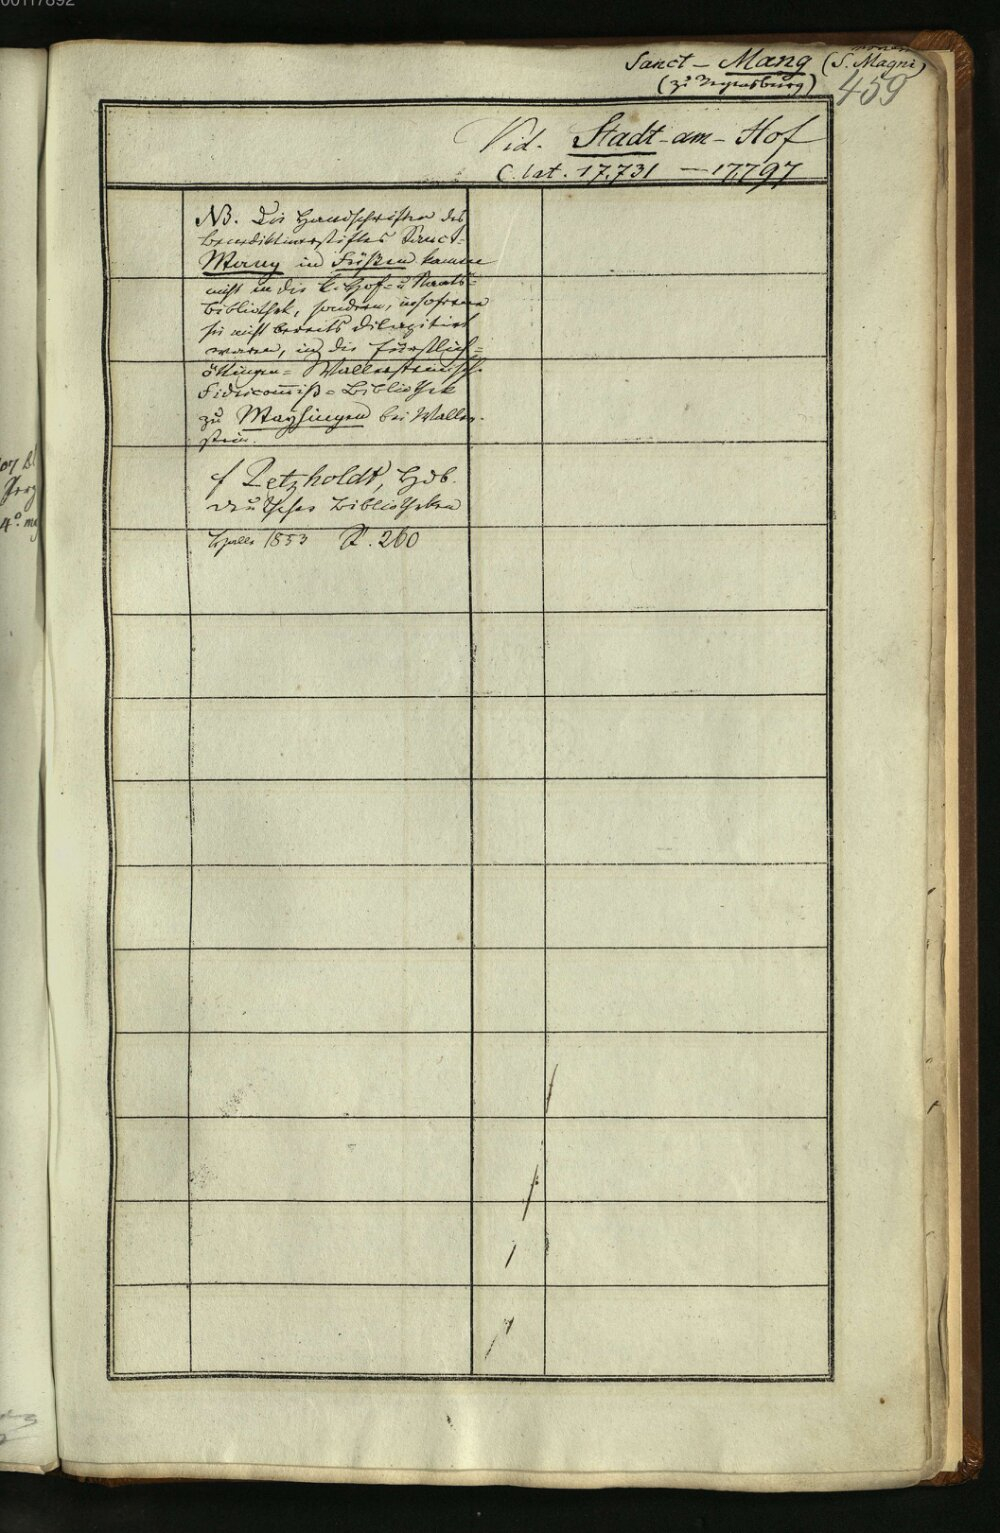 00117892
Sanct- Mang (S. Magni)
(zu Regensburg)
459
Vid. Stadt-am-Hof
C. lat. 17,731 — 17,797
NB. Die Handschriften des
Benediktinerstiftes Sanct-
Mang in Füßen kamen
nicht in die k. Hof- u Staats-
bibliothek, sondern, insoferne
sie nicht bereits dilapidirt
waren, in die fürstlich-
öttingen-Wallersteinische
Fideicommiß-Bibliothek
zu Mayhingen bei Waller-
stein.
f Petzholdt, Hdb.
deutscher Bibliotheken
Halle 1853 S. 260
4°.